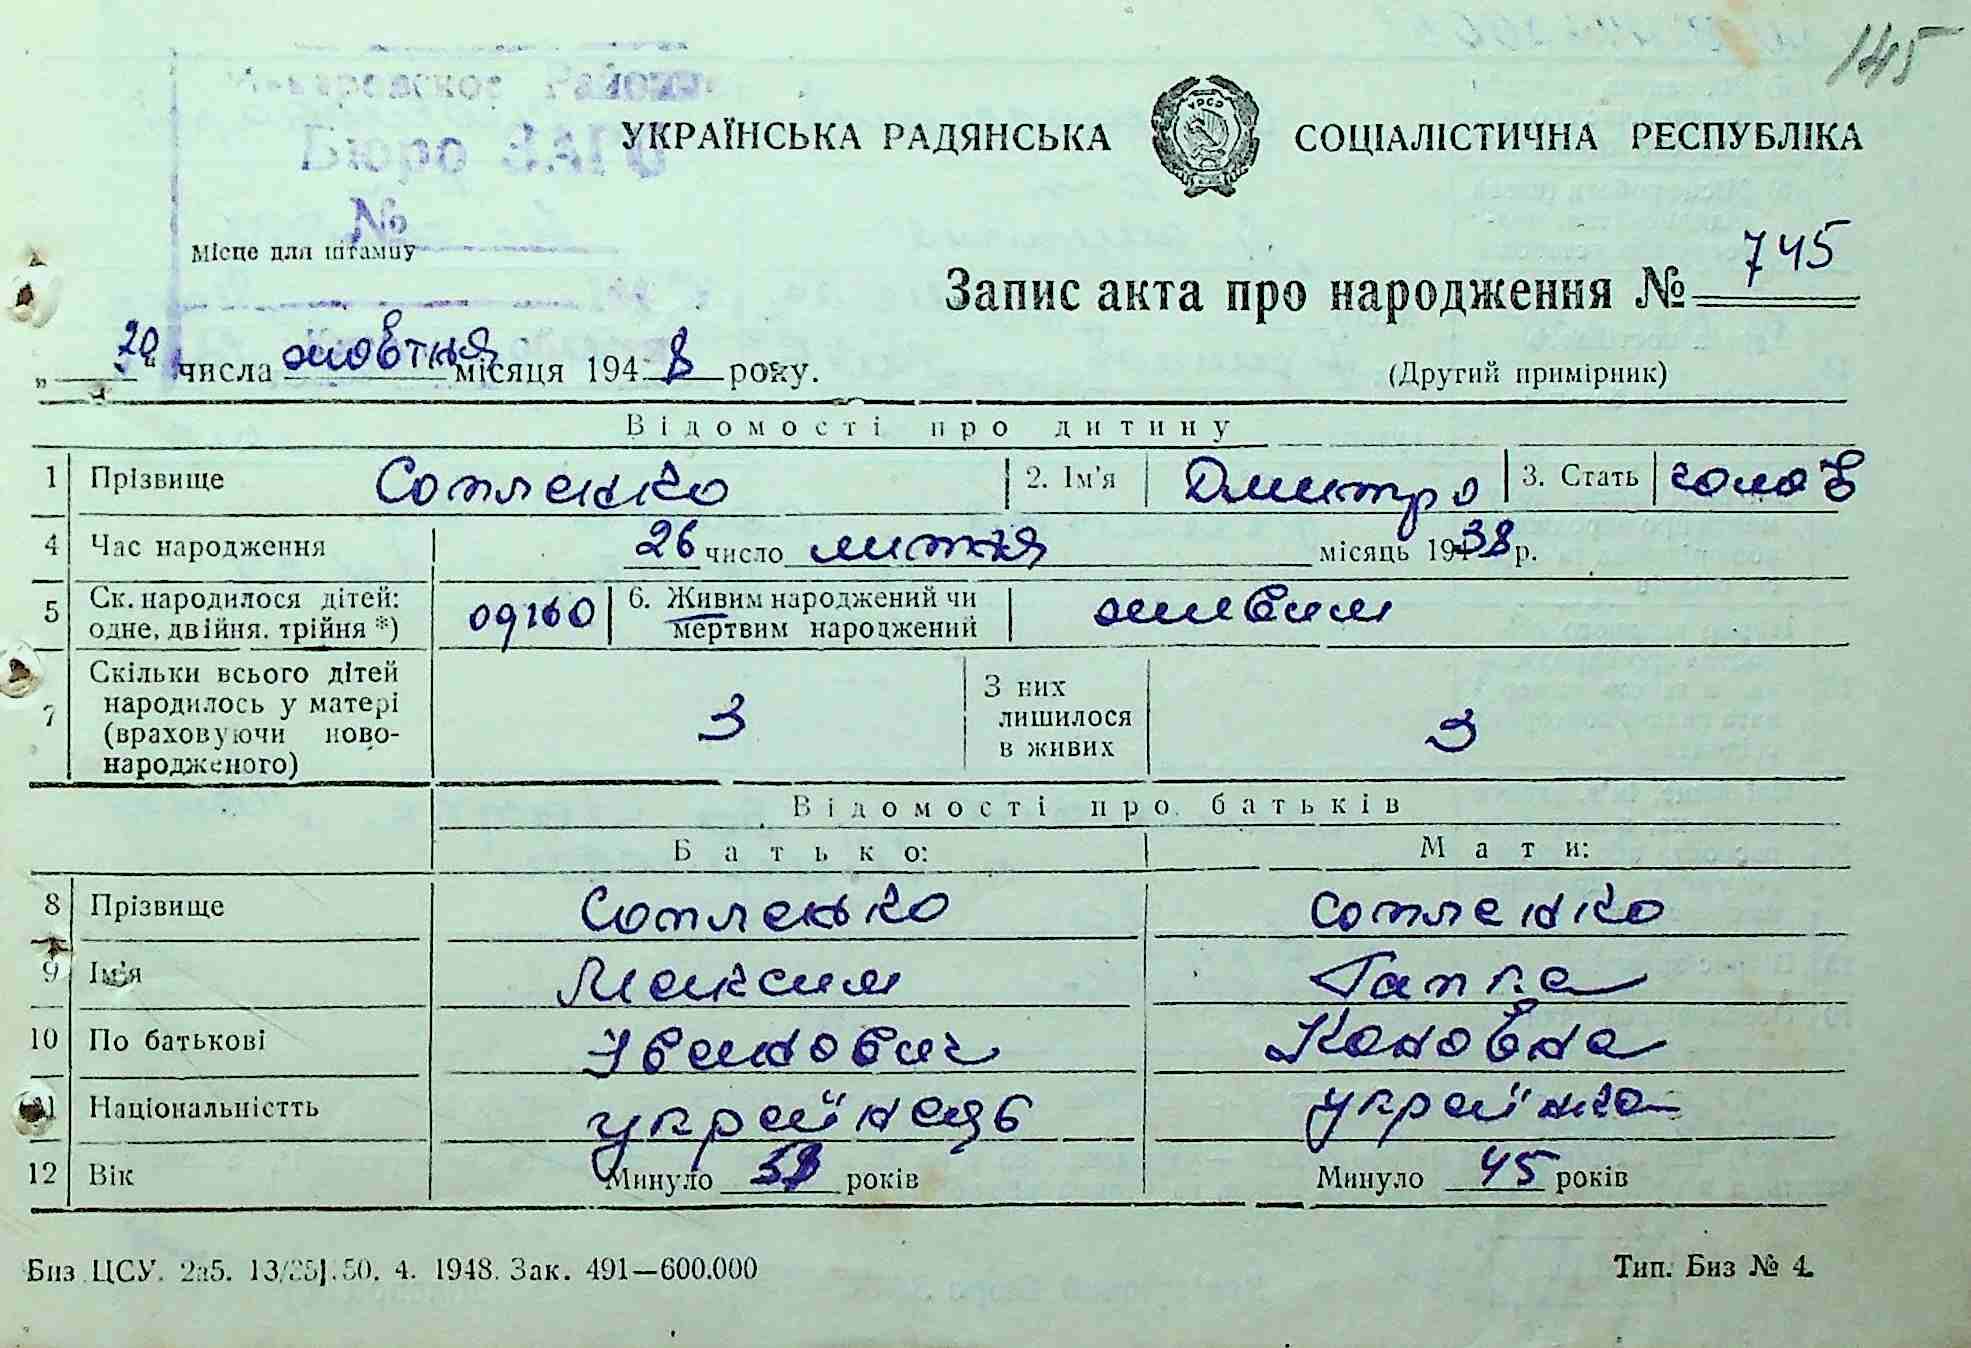 145
Бюро ЗАГС
№
УКРАЇНСЬКА РАДЯНСЬКА СОЦІАЛІСТИЧНА РЕСПУБЛІКА
УРСР
Місце для штампу
Запис акта про народження № 745
„ 20 " числа жовтня місяця 1948 року.
(Другий примірник)
Відомості про дитину
1 Прізвище Сопленко 2. Ім'я Дмитро 3. Стать чолов
4 Час народження 26 число лютня місяць 1938 р.
5 Ск. народилося дітей: одне, двійня, трійня *) одно 6. Живим народжений чи мертвим народжений живим
7 Скільки всього дітей народилось у матері (враховуючи ново-народженого) 3 З них лишилося в живих 3
Відомості про батьків
Батько: Мати:
8 Прізвище Сопленко Сопленко
9 Ім'я Максим Гапка
10 По батькові Іванович Кононовна
11 Національністть українець українка
12 Вік Минуло років Минуло 45 років
Биз ЦСУ. 2а5. 13/25]. 50. 4. 1948. Зак. 491—600.000
Тип. Биз № 4.